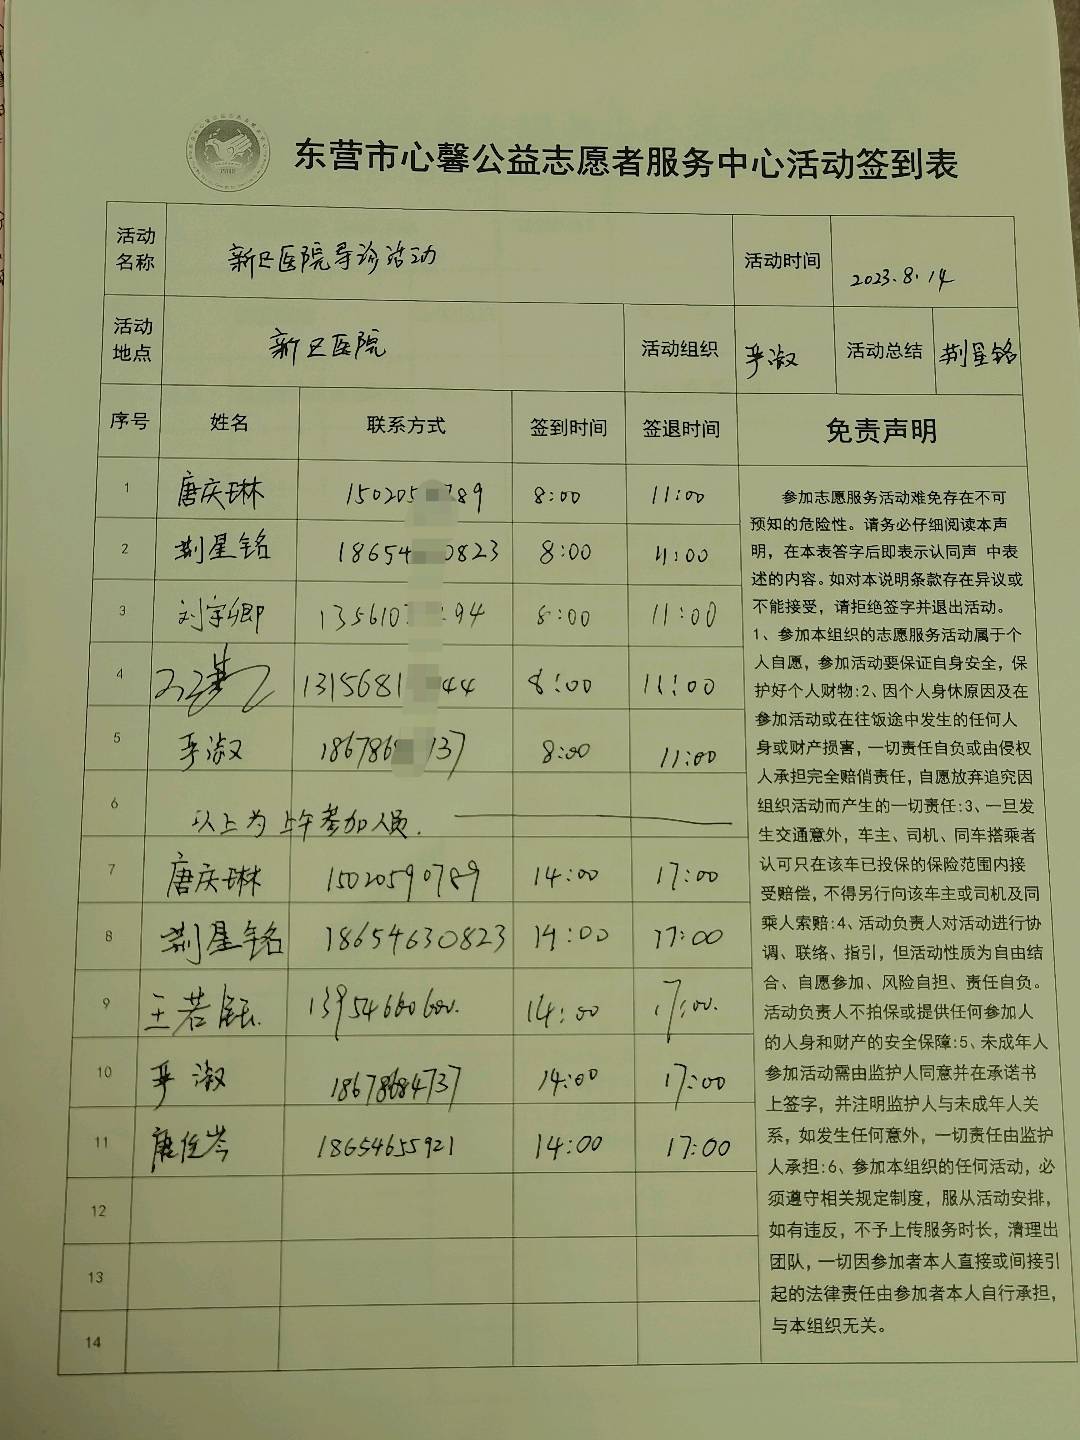 东营市心馨公益志愿者服务中心活动签到表
活动名称 新区医院导诊活动 活动时间 2023.8.14
活动地点 新区医院 活动组织 平淑 活动总结 荆星铭
序号 姓名 联系方式 签到时间 签退时间 免责声明
1 唐庆琳 150205 789 8:00 11:00
2 荆星铭 18654 0823 8:00 11:00
3 刘宇卿 1356107 94 8:00 11:00
4 1315681 44 8:00 11:00
5 平淑 186786 137 8:00 11:00
6 以上为上午参加人员.
7 唐庆琳 15020590789 14:00 17:00
8 荆星铭 18654630823 14:00 17:00
9 王若钰 14:00 17:00.
10 平淑 18678684737 14:00 17:00
11 唐佳岑 18654655921 14:00 17:00
12
13
14
参加志愿服务活动难免存在不可
预知的危险性。请务必仔细阅读本声
明，在本表答字后即表示认同声 中表
述的内容。如对本说明条款存在异议或
不能接受，请拒绝签字并退出活动。
1、参加本组织的志愿服务活动属于个
人自愿，参加活动要保证自身安全，保
护好个人财物:2、因个人身休原因及在
参加活动或在往饭途中发生的任何人
身或财产损害，一切责任自负或由侵权
人承担完全赔俏责任，自愿放弃追究因
组织活动而产生的一切责任:3、一旦发
生交通意外，车主、司机、同车搭乘者
认可只在该车已投保的保险范围内接
受赔偿，不得另行向该车主或司机及同
乘人索赔:4、活动负责人对活动进行协
调、联络、指引，但活动性质为自由结
合、自愿参加、风险自担、责任自负。
活动负责人不拍保或提供任何参加人
的人身和财产的安全保障:5、未成年人
参加活动需由监护人同意并在承诺书
上签字，并注明监护人与未成年人关
系，如发生任何意外，一切责任由监护
人承担:6、参加本组织的任何活动，必
须遵守相关规定制度，服从活动安排，
如有违反，不予上传服务时长，清理出
团队，一切因参加者本人直接或间接引
起的法律责任由参加者本人自行承担，
与本组织无关。